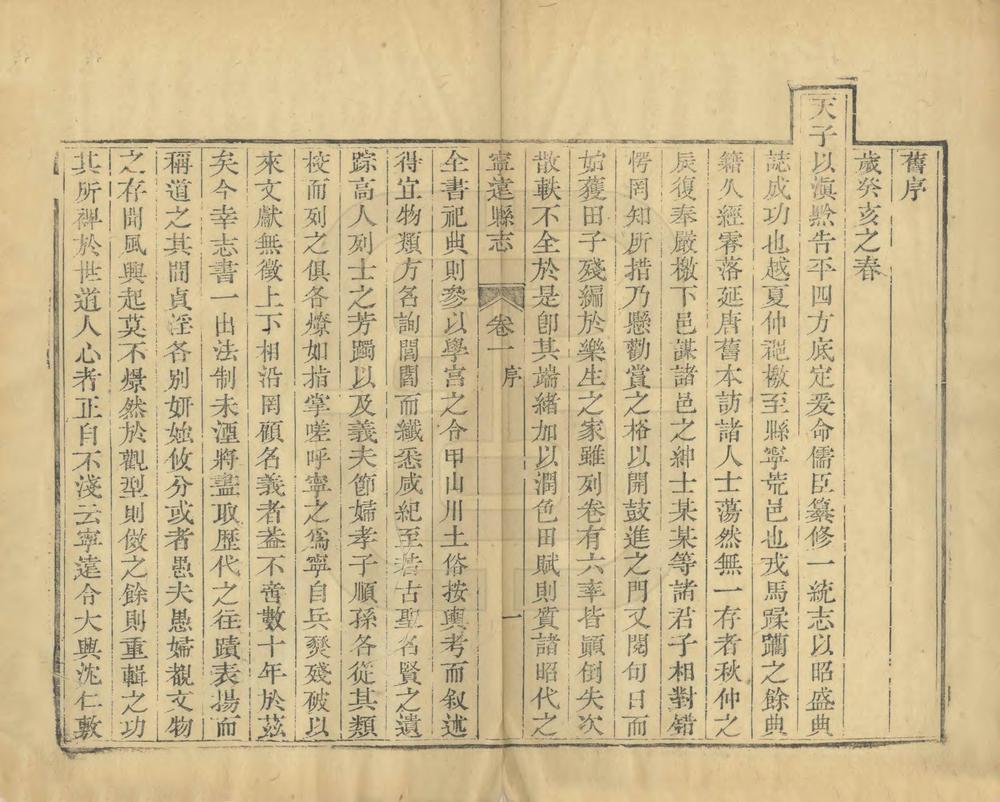 舊序
歲癸亥之春
天子以滇黔告平四方底定爰命儒臣纂修一統志以昭盛典
誌成功也越夏仲檄至縣寧荒邑也戎馬蹂躪之餘典
籍久經零落延唐舊本訪諸人士蕩然無一存者秋仲之
辰復奉嚴檄下邑謀諸邑之紳士某某等諸君子相對錯
愕罔知所措乃懸勸賞之格以開鼓進之門又閱旬日而
始獲田子殘編於樂生之家雖列卷有六率皆顚倒失次
散軼不全於是卽其端緒加以潤色田賦則質諸昭代之
寧遠縣志 卷一 序 一
全書祀典則參以學宮之令甲山川土俗按輿考而叙述
得宜物類方名詢閭閻而纖悉咸紀至若古聖名賢之遺
踪高人列士之芳躅以及義夫節婦孝子順孫各從其類
校而列之俱各燎如指掌嗟呼寧之爲寧自兵燹殘破以
來文獻無徵上下相沿罔顧名義者葢不啻數十年於茲
矣今幸志書一出法制未湮將盡取歷代之往蹟表揚而
稱道之其間貞淫各別妍媸攸分或者愚夫愚婦覩文物
之存聞風興起莫不憬然於觀型則倣之餘則重輯之功
其所裨於世道人心者正自不淺云寧遠令大興沈仁敷